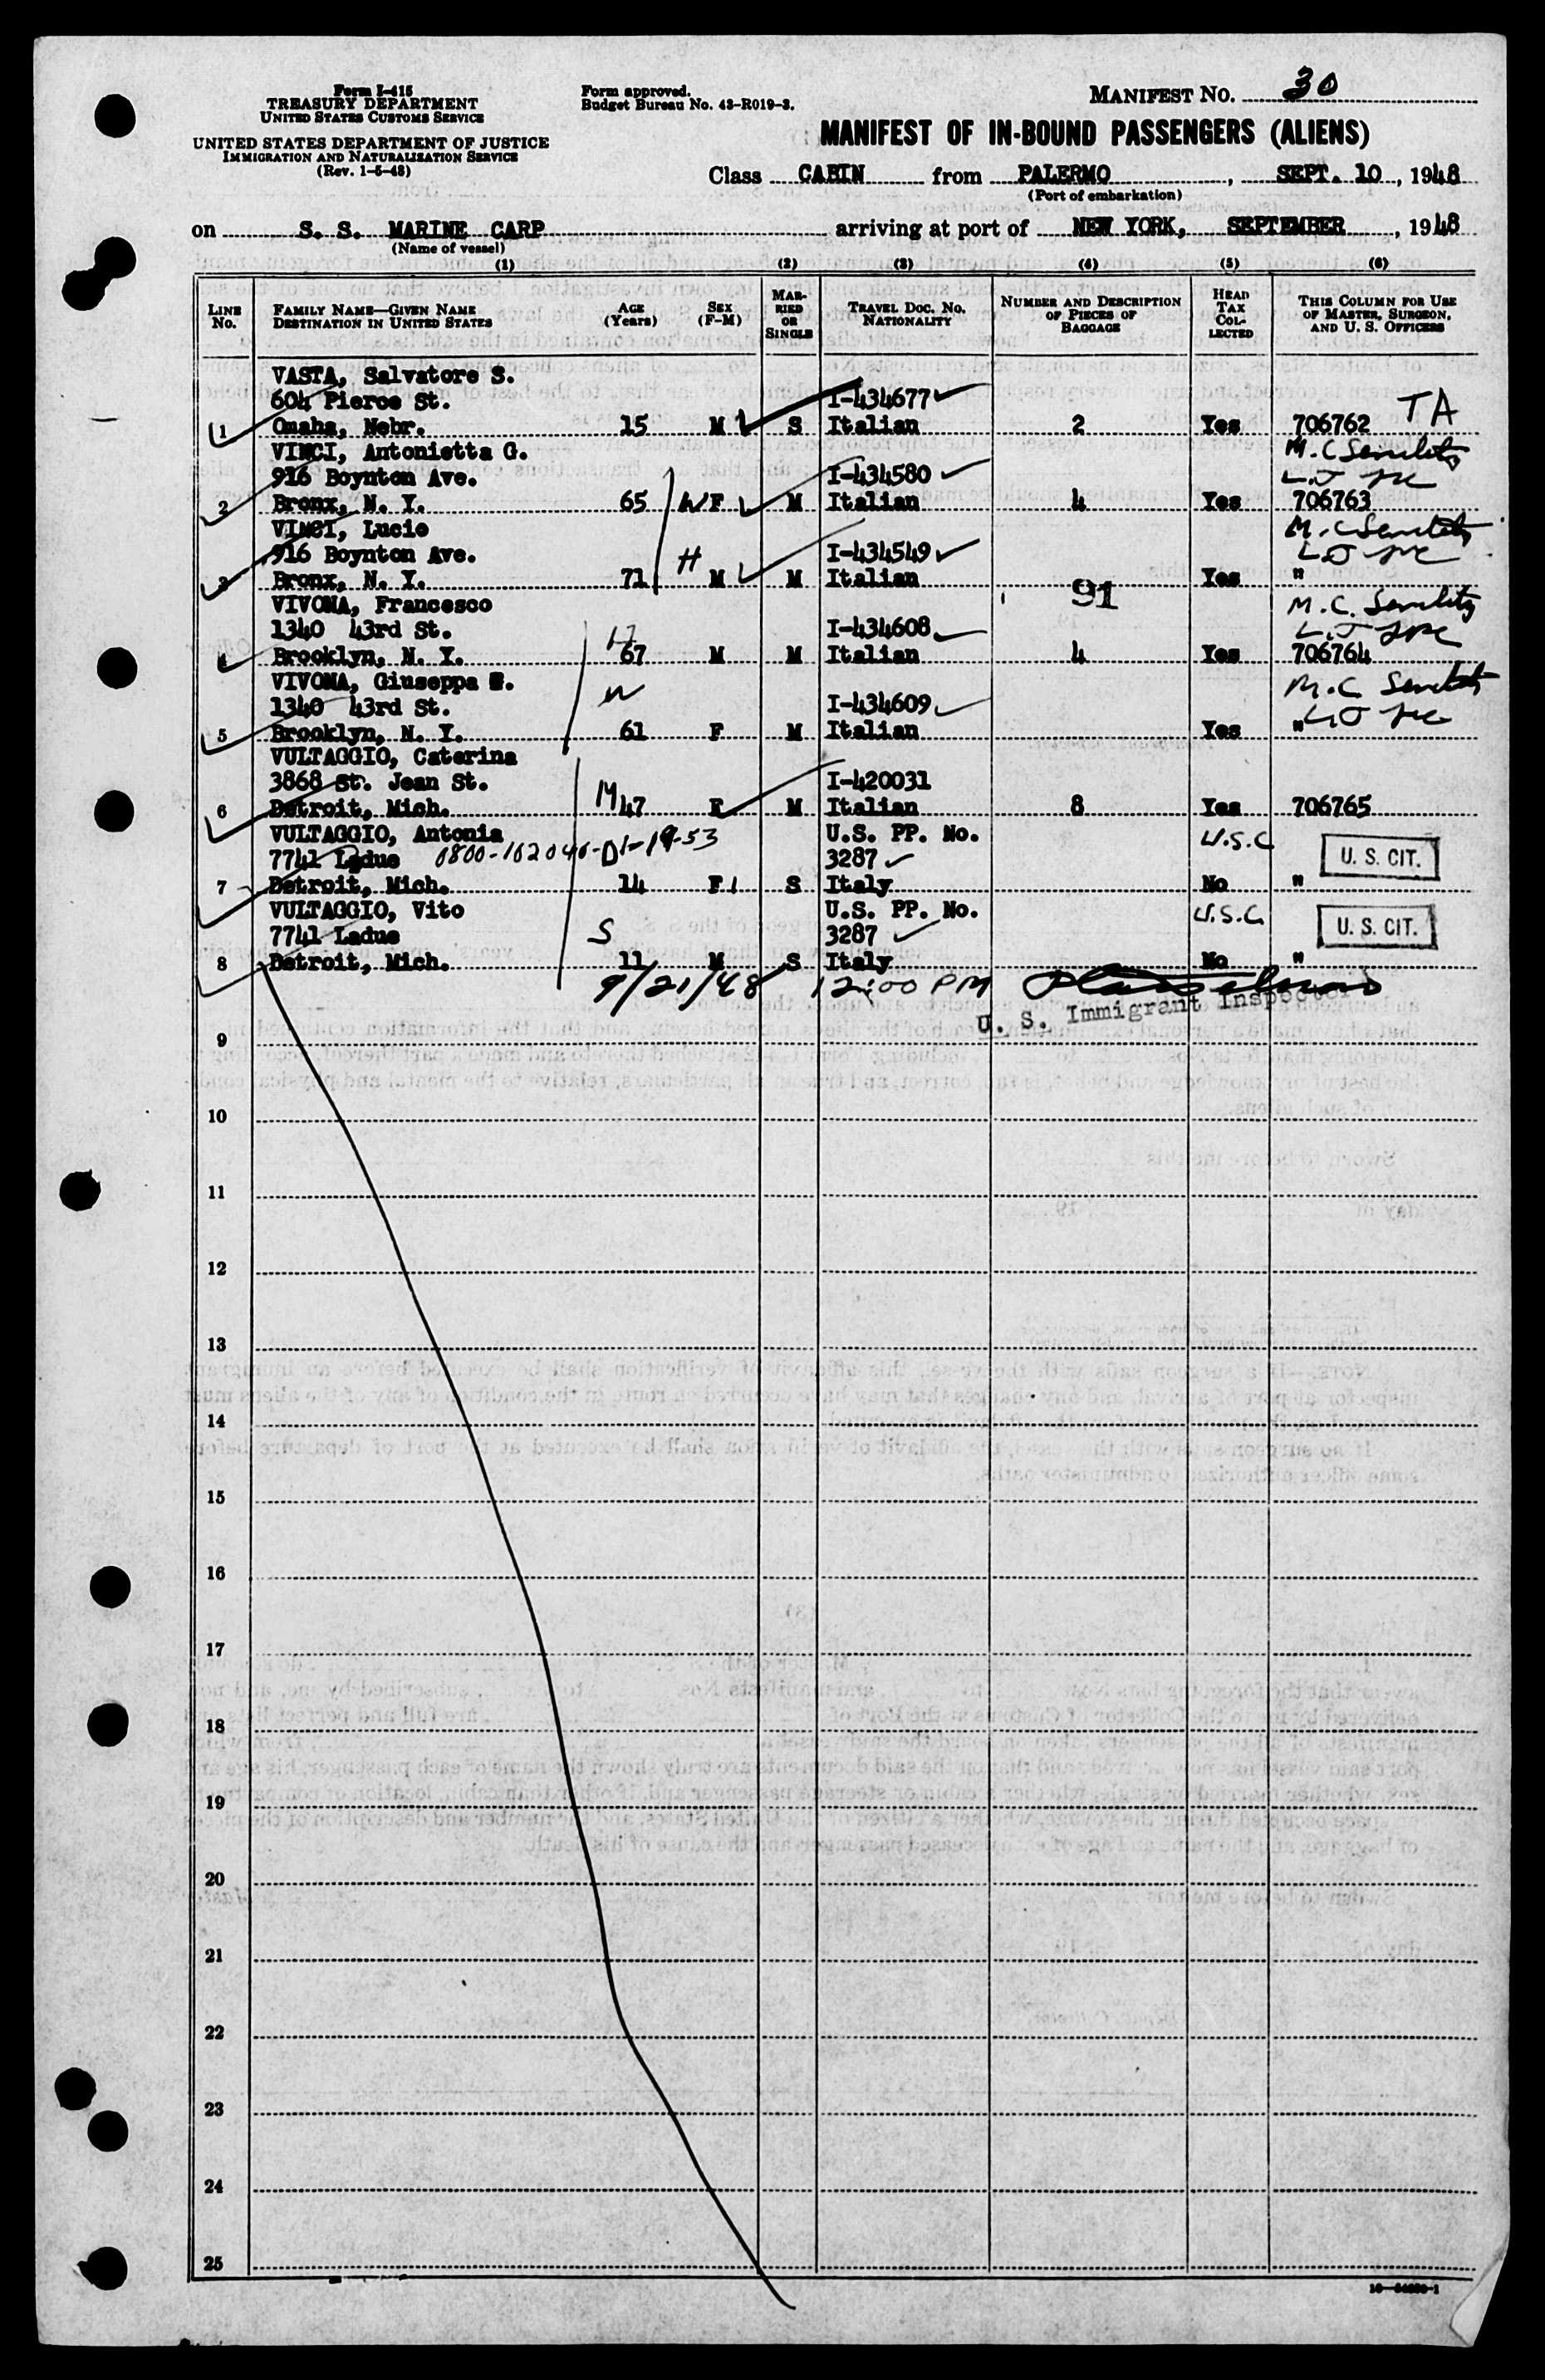 Form I-415
TREASURY DEPARTMENT
UNITED STATES CUSTOMS SERVICE
UNITED STATES DEPARTMENT OF JUSTICE
IMMIGRATION AND NATURALIZATION SERVICE
(Rev. 1-5-48)
Form approved.
Budget Bureau No. 43-R019-3.
MANIFEST NO. 30
MANIFEST OF IN-BOUND PASSENGERS (ALIENS)
Class CABIN from PALERMO, SEPT. 10, 1948
(Port of embarkation)
on S. S. MARINE CARP arriving at port of NEW YORK, SEPTEMBER, 1948
(Name of vessel)
(1) (2) (3) (4) (5) (6)
LINE No. FAMILY NAME—GIVEN NAME DESTINATION IN UNITED STATES AGE (Years) SEX (F-M) MARRIED OR SINGLE TRAVEL DOC. NO. NATIONALITY NUMBER AND DESCRIPTION OF PIECES OF BAGGAGE HEAD TAX COLLECTED THIS COLUMN FOR USE OF MASTER, SURGEON, AND U. S. OFFICERS
VASTA, Salvatore S.
604 Pierce St. I-434677 TA
1 Omaha, Nebr. 15 M S Italian 2 Yes 706762
VINCI, Antonietta G. M.C
916 Boynton Ave. I-434580
2 Bronx, N. Y. 65 W F M Italian 4 Yes 706763
VINCI, Lucio M.C
916 Boynton Ave. I-434549
3 Bronx, N. Y. 71 H M M Italian Yes "
91
VIVONA, Francesco M.C.
1340 43rd St. H I-434608
4 Brooklyn, N. Y. 67 M M Italian 4 Yes 706764
VIVONA, Giuseppa M.C
1340 43rd St. W I-434609
5 Brooklyn, N. Y. 61 F M Italian Yes "
VULTAGGIO, Caterina
3868 St. Jean St. I-420031
6 Detroit, Mich. M 47 F M Italian 8 Yes 706765
VULTAGGIO, Antonia U.S. PP. No. U.S.C
7741 Ladue 0800-102040-D1-19-53 3287 U. S. CIT.
7 Detroit, Mich. 14 F S Italy No "
VULTAGGIO, Vito U.S. PP. No. U.S.C
7741 Ladue S 3287 U. S. CIT.
8 Detroit, Mich. 11 M S Italy No "
9/21/48 12:00 PM
U. S. Immigrant Inspector
9
10
11
12
13
14
15
16
17
18
19
20
21
22
23
24
25